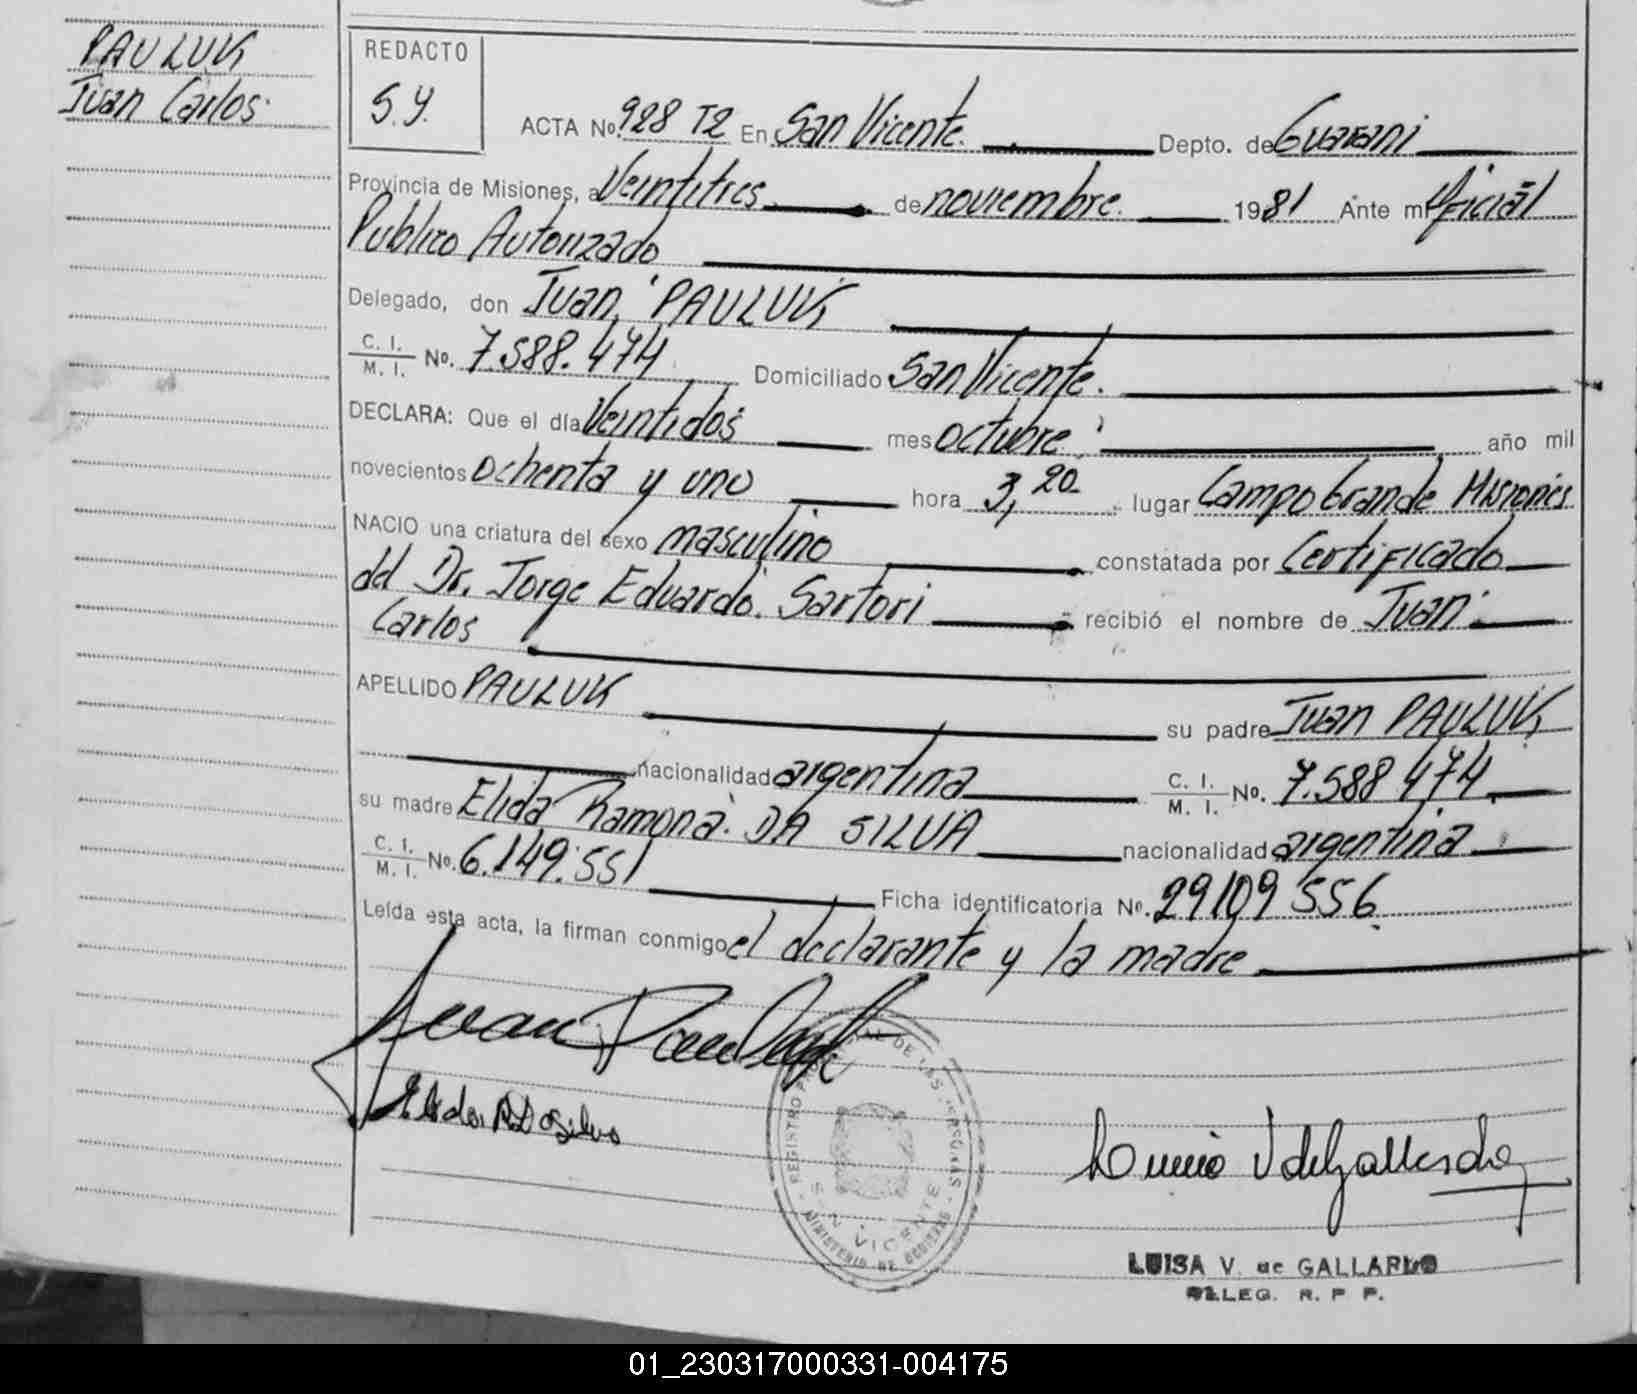 PAULUK
Juan Carlos.
REDACTO
S.Y.
ACTA No. 928 T2 En San Vicente. Depto. de Guarani
Provincia de Misiones, a Veintitres de noviembre. 1981 Ante mi Oficial
Publico Autorizado
Delegado, don Juan PAULUK,
C. I. / M. I. No. 7.588.474 Domiciliado San Vicente.
DECLARA: Que el día Veintidos mes octubre año mil
novecientos ochenta y uno hora 3,20 lugar Campo Grande Misiones
NACIO una criatura del sexo masculino constatada por Certificado
del Dr. Jorge Eduardo. Sartori recibió el nombre de Juan
Carlos
APELLIDO PAULUK su padre Juan PAULUK,
nacionalidad argentina C. I. / M. I. No. 7.588 474
su madre Elida Ramona DA SILVA nacionalidad argentina
C. I. / M. I. No. 6.149.551 Ficha identificatoria No. 29109 556
Leída esta acta, la firman conmigo el declarante y la madre
Juan Pauluk
Elida R Da silva
REGISTRO PROVINCIAL DE LAS PERSONAS
SAN VICENTE
MINISTERIO DE GOBIERNO
LUISA V. de GALLARDO
DELEG. R. P. P.
01_230317000331-004175